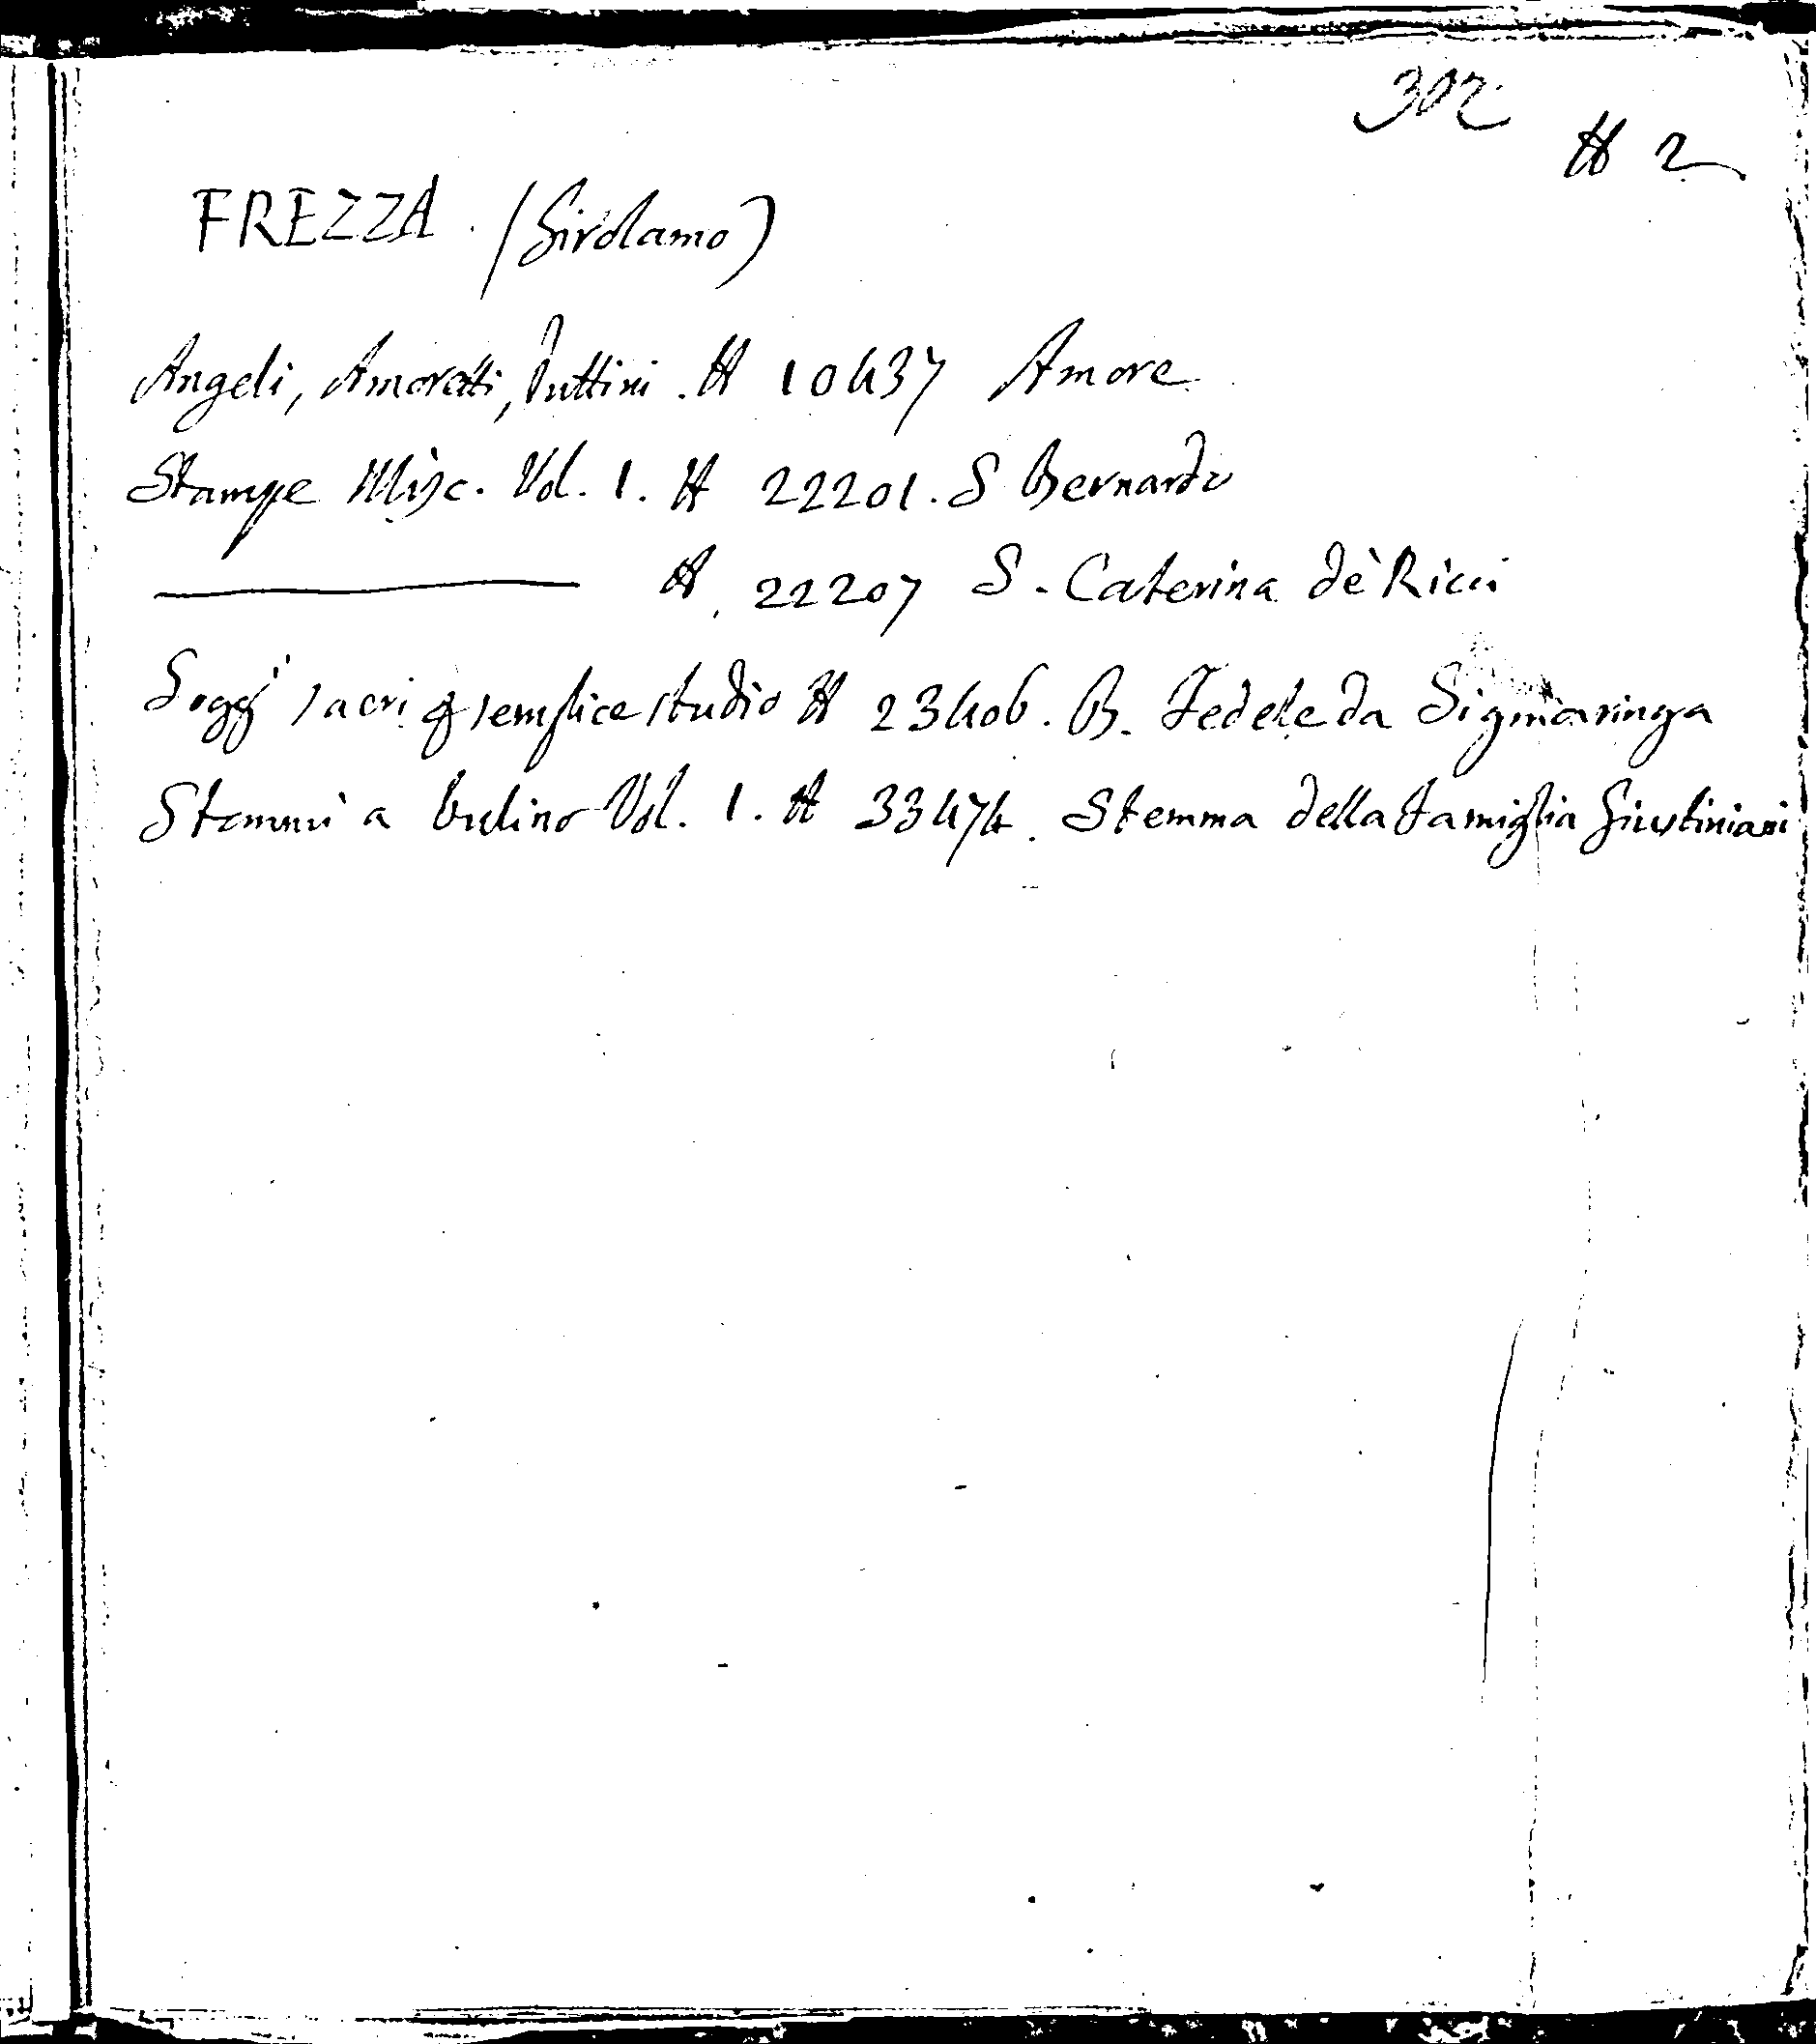 302
# 2
FREZZA. (Girolamo)
Angeli, Amoretti, Puttini. # 10437 Amore
Stampe Misc. Vol. 1. # 22201. S Bernardo
# 22207 S. Caterina de' Ricci
Sogg.i sacri p semplice studio # 23406. B. Fedele da Sigmaringa
Stemmi a bulino Vol. 1. # 33474. Stemma della famiglia Giustiniani